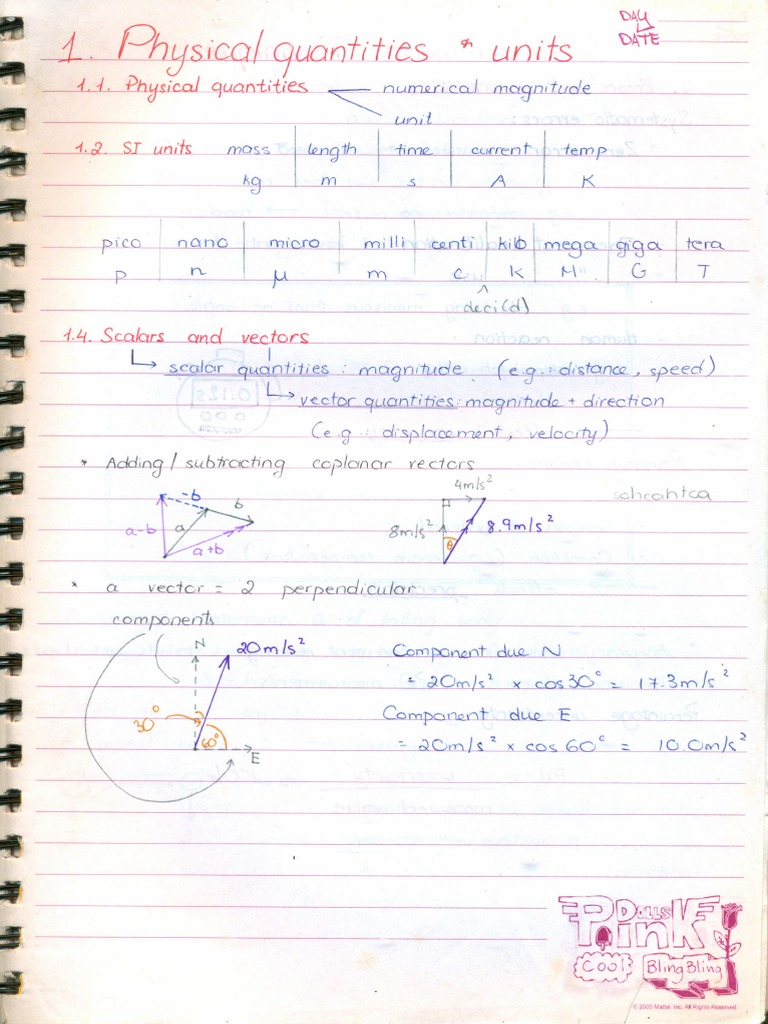 DAY
DATE
1. Physical quantities & units
1.1. Physical quantities numerical magnitude
unit
1.2. SI units mass length time current temp
kg m s A K
pico nano micro milli centi kilo mega giga tera
p n μ m c k M G T
^
deci(d)
1.4. Scalars and vectors
scalar quantities : magnitude (e.g.: distance, speed)
vector quantities: magnitude + direction
(e.g.: displacement, velocity)
* Adding/subtracting coplanar vectors
-b b a-b a a+b
4m/s² 8m/s² 8.9m/s² θ
sohcahtoa
* a vector = 2 perpendicular
components
N 20m/s² 30° 60° E
Component due N
= 20m/s² x cos30° = 17.3m/s²
Component due E
= 20m/s² x cos 60° = 10.0m/s²
DOLLS
Pink
Cool BlingBling
© 2005 Mattel, Inc. All Rights Reserved